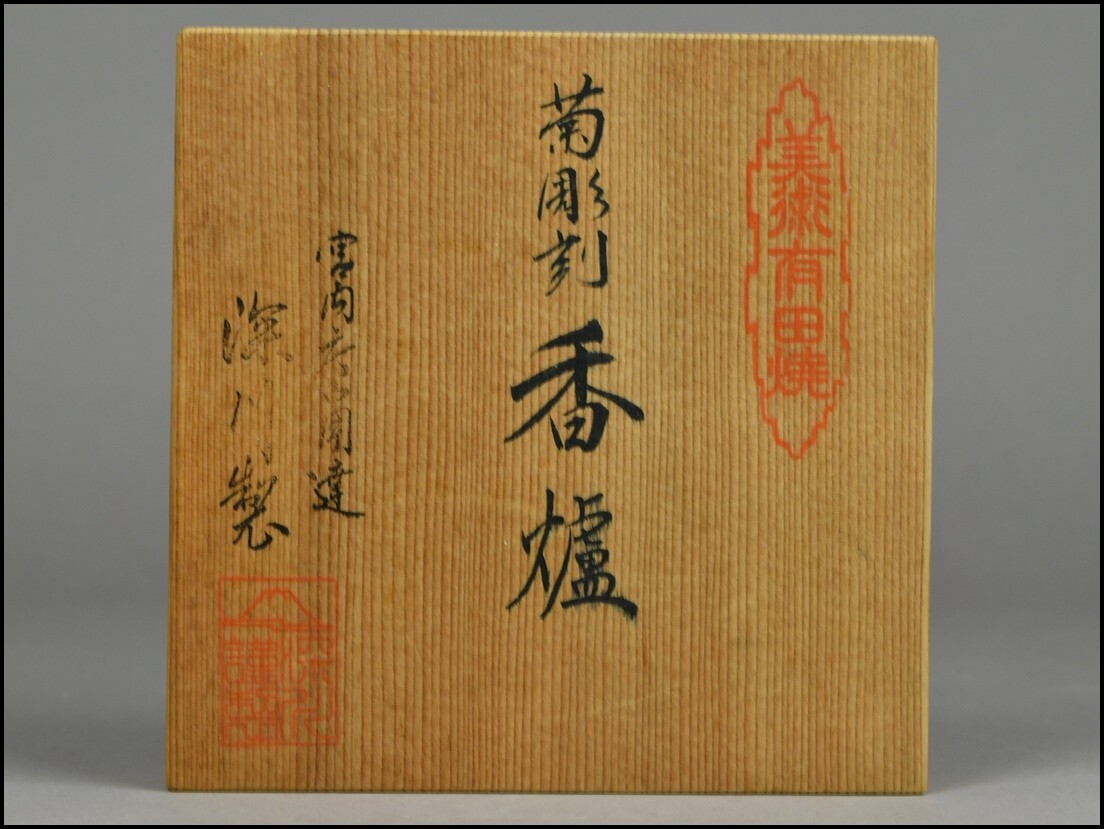 美術有田焼
菊彫刻 香爐
宮内庁御用達
深川製
深川
謹製